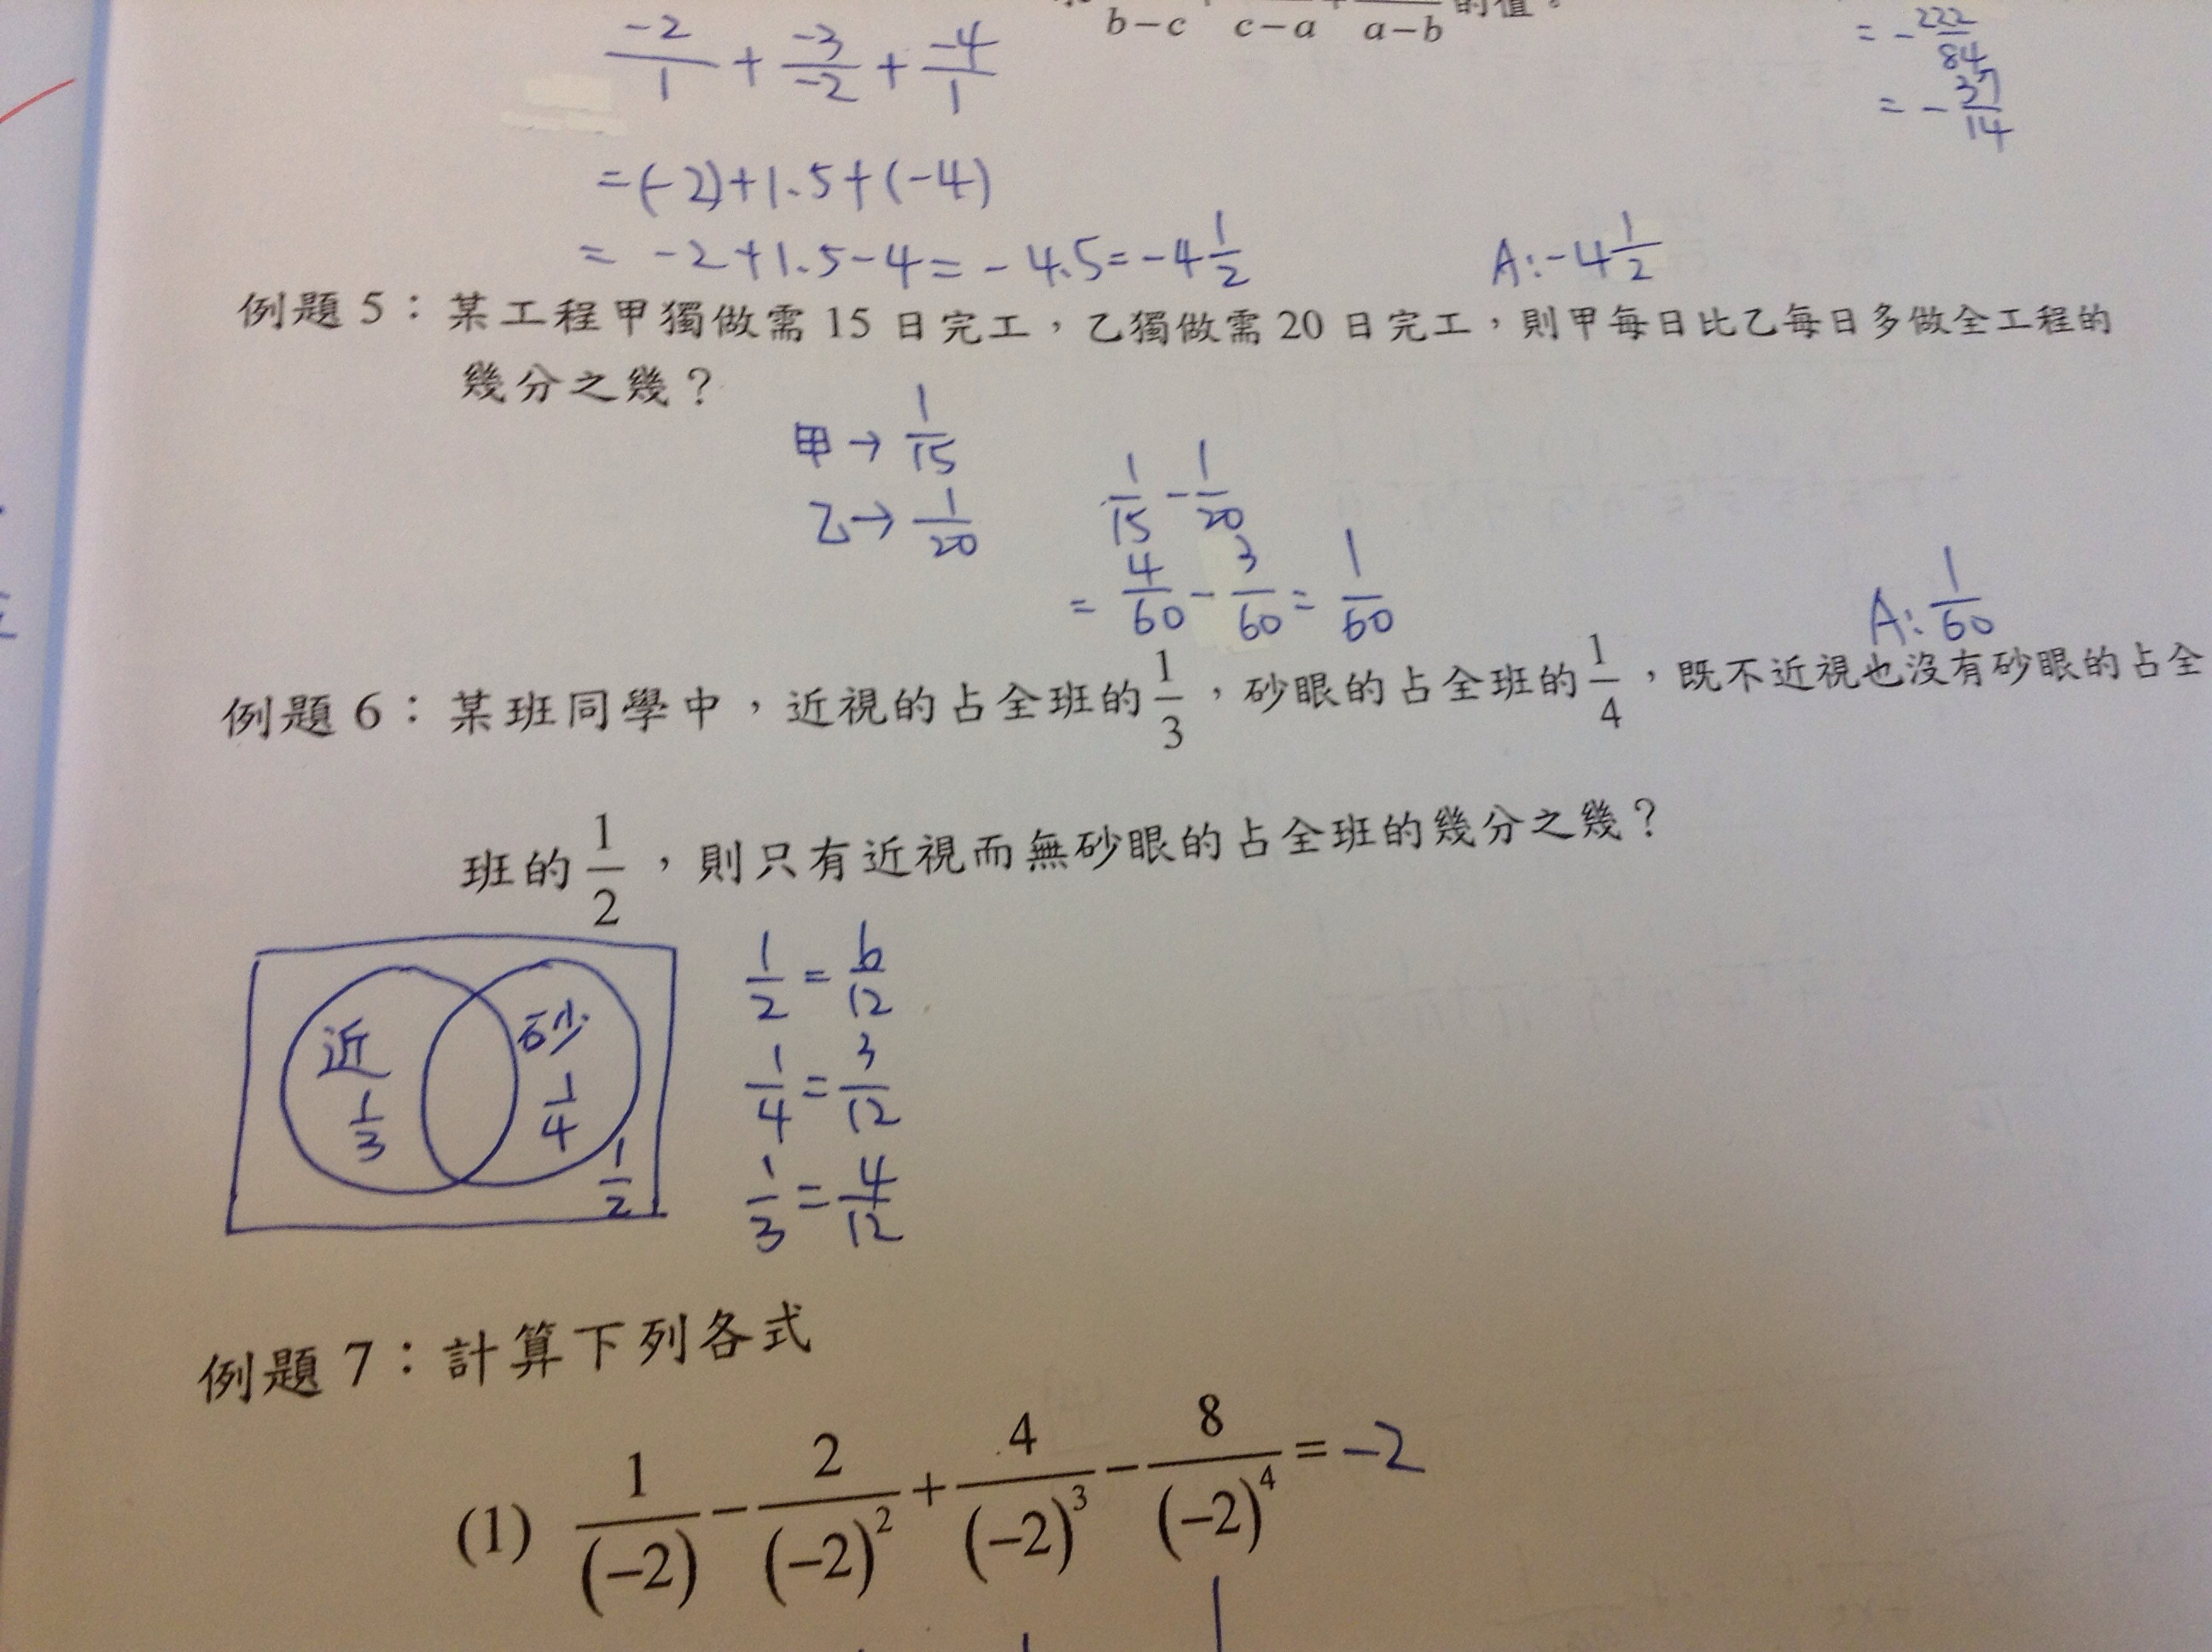 b−c c−a + a−b 的值。
-2/1 + -3/-2 + -4/1
= -222/84
= -37/14
=(-2)+1.5+(-4)
= -2+1.5-4= -4.5= -4 1/2
A:-4 1/2
例題5：某工程甲獨做需15日完工，乙獨做需20日完工，則甲每日比乙每日多做全工程的
幾分之幾？
甲→ 1/15
乙→ 1/20
1/15 - 1/20
= 4/60 - 3/60 = 1/60
A: 1/60
例題6：某班同學中，近視的占全班的1/3，砂眼的占全班的1/4，既不近視也沒有砂眼的占全
班的1/2，則只有近視而無砂眼的占全班的幾分之幾？
近 1/3
砂 1/4
1/2
1/2 = 6/12
1/4 = 3/12
1/3 = 4/12
例題7：計算下列各式
(1) 1/(−2) − 2/(−2)² + 4/(−2)³ − 8/(−2)⁴ = -2